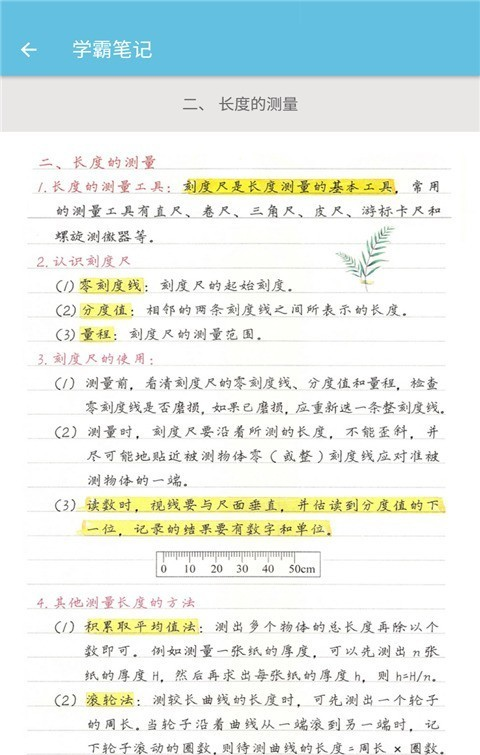 学霸笔记
二、 长度的测量
二、长度的测量
1.长度的测量工具：刻度尺是长度测量的基本工具，常用
的测量工具有直尺、卷尺、三角尺、皮尺、游标卡尺和
螺旋测微器等。
2.认识刻度尺
(1)零刻度线：刻度尺的起始刻度。
(2)分度值：相邻的两条刻度线之间所表示的长度。
(3)量程：刻度尺的测量范围。
3.刻度尺的使用：
(1) 测量前，看清刻度尺的零刻度线、分度值和量程，检查
零刻度线是否磨损，如果已磨损，应重新选一条整刻度线。
(2) 测量时，刻度尺要沿着所测的长度，不能歪斜，并
尽可能地贴近被测物体零（或整）刻度线应对准被
测物体的一端。
(3) 读数时，视线要与尺面垂直，并估读到分度值的下
一位，记录的结果要有数字和单位。
0 10 20 30 40 50cm
4.其他测量长度的方法
(1) 积累取平均值法：测出多个物体的总长度再除以个
数即可。例如测量一张纸的厚度，可以先测出n张
纸的厚度H，然后再求出每张纸的厚度h，则h=H/n。
(2) 滚轮法：测较长曲线的长度时，可先测出一个轮子
的周长。当轮子沿着曲线从一端滚到另一端时，记
下轮子滚动的圈数，则待测曲线的长度=周长×圈数。